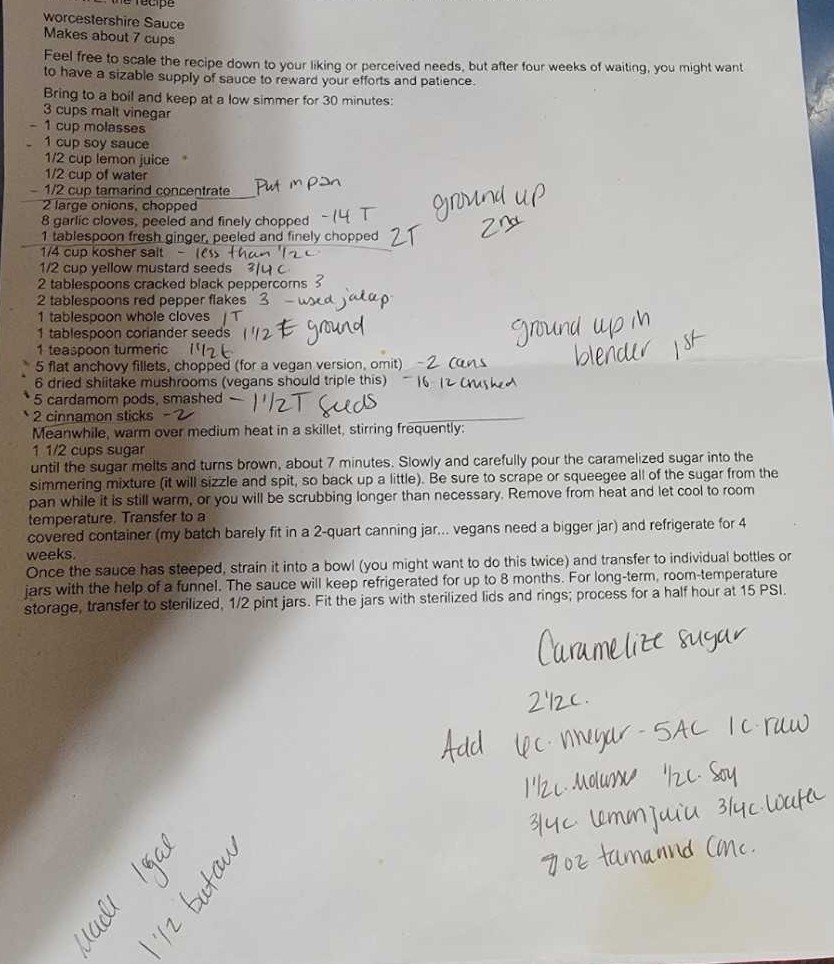 the recipe
worcestershire Sauce
Makes about 7 cups
Feel free to scale the recipe down to your liking or perceived needs, but after four weeks of waiting, you might want
to have a sizable supply of sauce to reward your efforts and patience.
Bring to a boil and keep at a low simmer for 30 minutes:
3 cups malt vinegar
- 1 cup molasses
- 1 cup soy sauce
1/2 cup lemon juice
1/2 cup of water
- 1/2 cup tamarind concentrate Put in pan
2 large onions, chopped
8 garlic cloves, peeled and finely chopped -14 T
ground up
2nd
1 tablespoon fresh ginger, peeled and finely chopped 2T
1/4 cup kosher salt - less than 1/2 c
1/2 cup yellow mustard seeds 3/4 c
2 tablespoons cracked black peppercorns 3
2 tablespoons red pepper flakes 3 - used jalap
1 tablespoon whole cloves 1T
1 tablespoon coriander seeds 1 1/2 t ground
ground up in
blender 1st
1 teaspoon turmeric 1 1/2 t
5 flat anchovy fillets, chopped (for a vegan version, omit) -2 cans
6 dried shiitake mushrooms (vegans should triple this) - 16 12 crushed
5 cardamom pods, smashed - 1 1/2 T seeds
2 cinnamon sticks -2
Meanwhile, warm over medium heat in a skillet, stirring frequently:
1 1/2 cups sugar
until the sugar melts and turns brown, about 7 minutes. Slowly and carefully pour the caramelized sugar into the
simmering mixture (it will sizzle and spit, so back up a little). Be sure to scrape or squeegee all of the sugar from the
pan while it is still warm, or you will be scrubbing longer than necessary. Remove from heat and let cool to room
temperature. Transfer to a
covered container (my batch barely fit in a 2-quart canning jar... vegans need a bigger jar) and refrigerate for 4
weeks.
Once the sauce has steeped, strain it into a bowl (you might want to do this twice) and transfer to individual bottles or
jars with the help of a funnel. The sauce will keep refrigerated for up to 8 months. For long-term, room-temperature
storage, transfer to sterilized, 1/2 pint jars. Fit the jars with sterilized lids and rings; process for a half hour at 15 PSI.
Caramelize sugar
2 1/2 c.
Add 6c. vinegar - 5AC 1c. raw
1 1/2 c. Molasses 1/2 c. Soy
3/4 c. lemon juice 3/4 c. water
oz tamarind Conc.
Made 1 gal
1 1/2